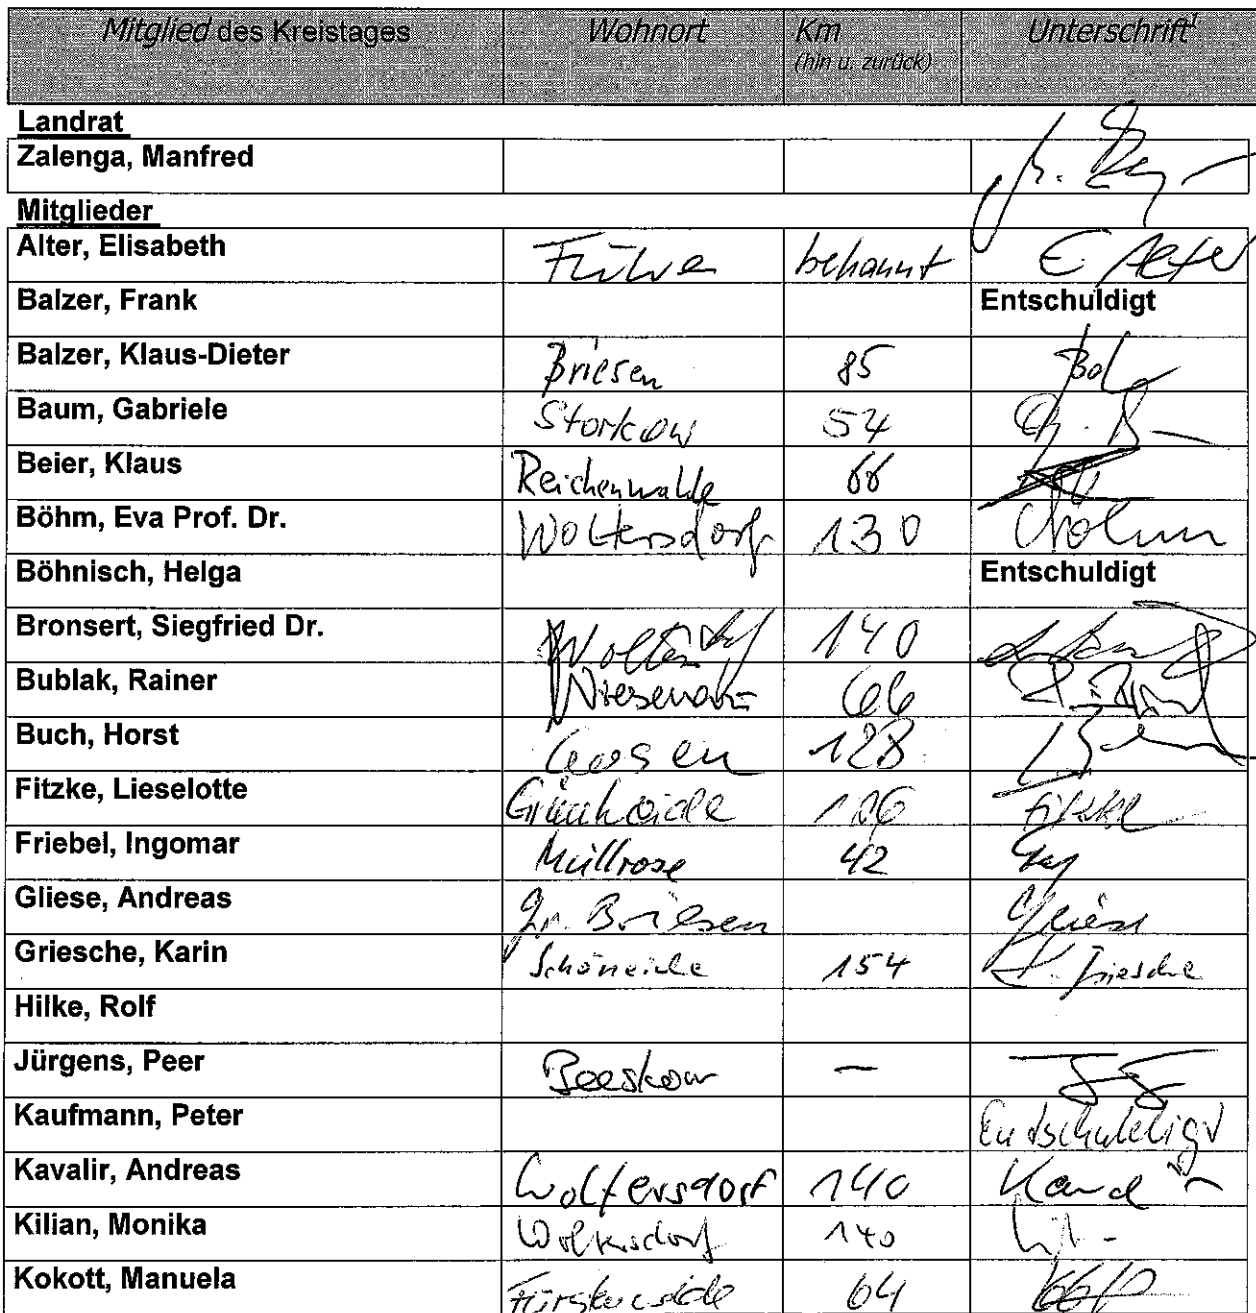 Mitglied des Kreistages Wohnort Km Unterschrift¹
(hin u. zurück)
Landrat
Zalenga, Manfred
Mitglieder
Alter, Elisabeth Füwa bekannt E. Alter
Balzer, Frank Entschuldigt
Balzer, Klaus-Dieter Briesen 85
Baum, Gabriele Storkow 54
Beier, Klaus Reichenwalde 66
Böhm, Eva Prof. Dr. Woltersdorf 130 Böhm
Böhnisch, Helga Entschuldigt
Bronsert, Siegfried Dr. Woltersdorf 140
Bublak, Rainer 66
Buch, Horst Gosen 128
Fitzke, Lieselotte Grünheide 106 Fitzke
Friebel, Ingomar Müllrose 42
Gliese, Andreas Gr. Briesen Gliese
Griesche, Karin Schöneiche 154 K. Griesche
Hilke, Rolf
Jürgens, Peer Beeskow –
Kaufmann, Peter Entschuldigt
Kavalir, Andreas Woltersdorf 140
Kilian, Monika Woltersdorf 140
Kokott, Manuela Fürstenwalde 64